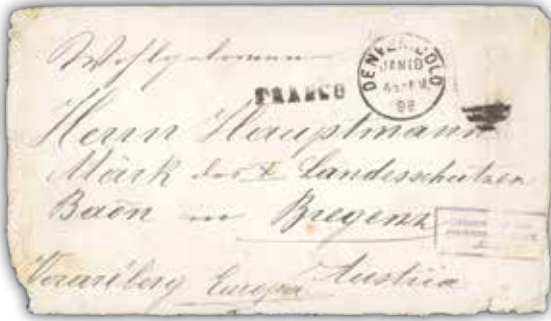 Wohlgeboren
FRANCO
DENVER. COLO
JAN 10
98
Herrn Hauptmann
Märk des Landesschützen
Baon in Bregenz
Vorarlberg Europa Austria